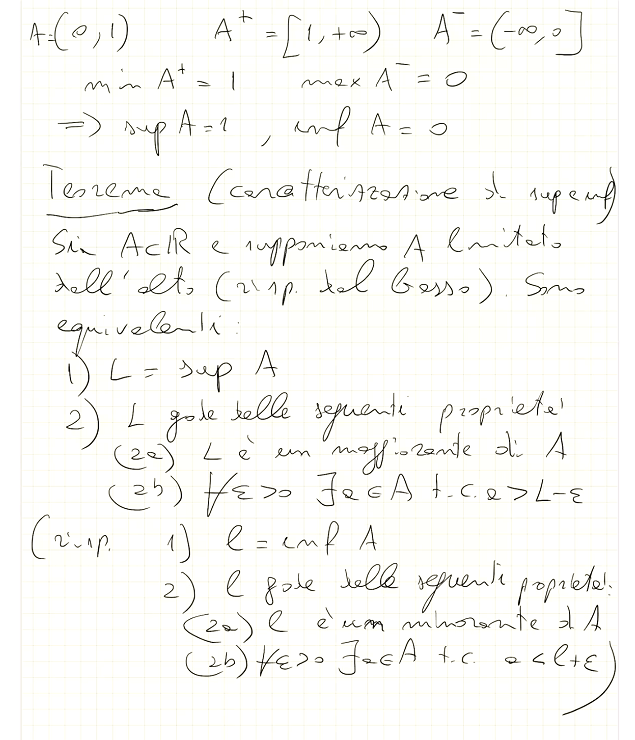 A=(0,1) A⁺=[1,+∞) A⁻=(-∞,0]
min A⁺=1 max A⁻=0
=> sup A=1, inf A=0
Teorema (caratterizzazione di sup e inf)
Sia A⊂ℝ e supponiamo A limitato
dall'alto (risp. dal basso). Sono
equivalenti:
1) L = sup A
2) L gode delle seguenti proprietà'
(2a) L è un maggiorante di A
(2b) ∀ε>0 ∃a∈A t.c. a>L-ε
(risp. 1) l = inf A
2) l gode delle seguenti proprietà:
(2a) l è un minorante d A
(2b) ∀ε>0 ∃a∈A t.c. a<l+ε)